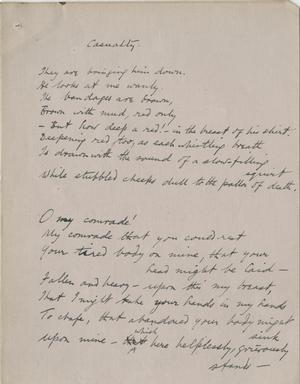 Casualty.
They are bringing him down.
He looks at me wanly.
The bandages are brown,
Brown with mud, red only
– But how deep a red! – in the breast of his shirt.
Deepening red, too, as each whistling breath
Is drawn with the sound of a slow-falling
squirt
While stubbled cheeks dull to the pallor of death.
O my comrade!
My comrade that you could rest
Your tired body on mine, that your
head might be laid –
Fallen and heavy – upon this my breast,
That I might take your hands in my hands
To chafe, that abandoned your body might
sink
upon mine – which here helplessly, grievously
stands –